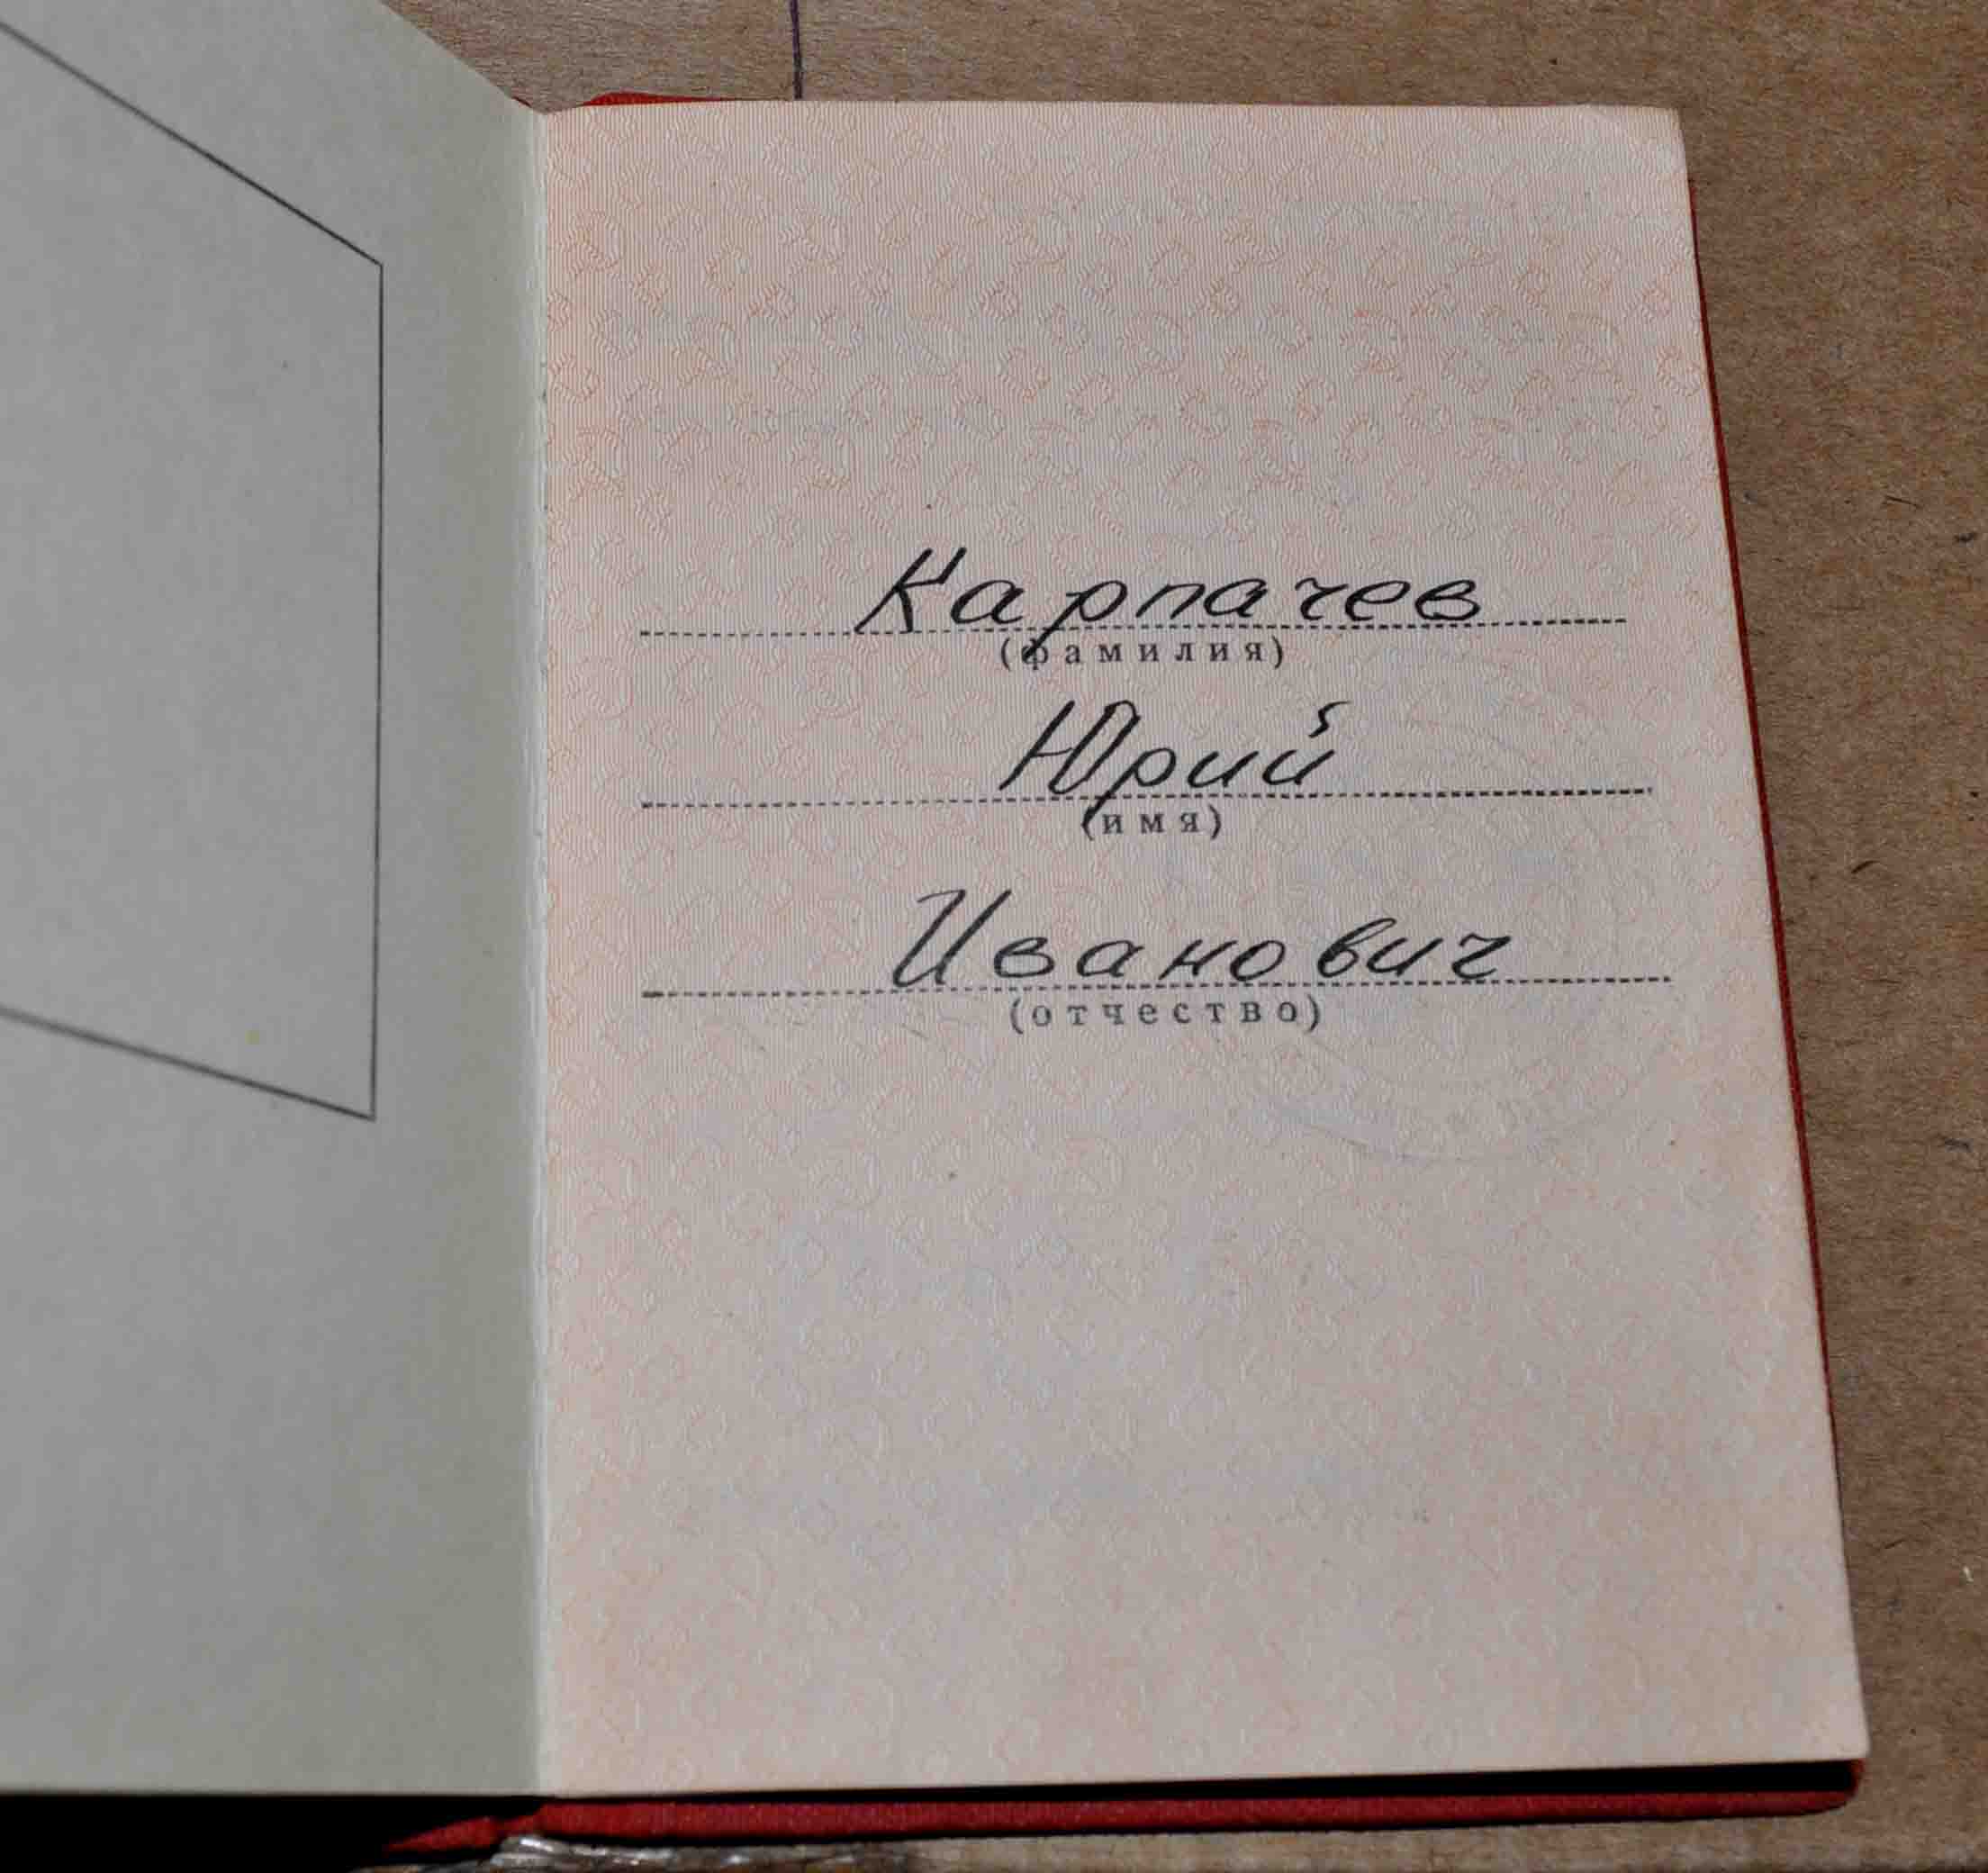 Карпачев
(фамилия)
Юрий
(имя)
Иванович
(отчество)